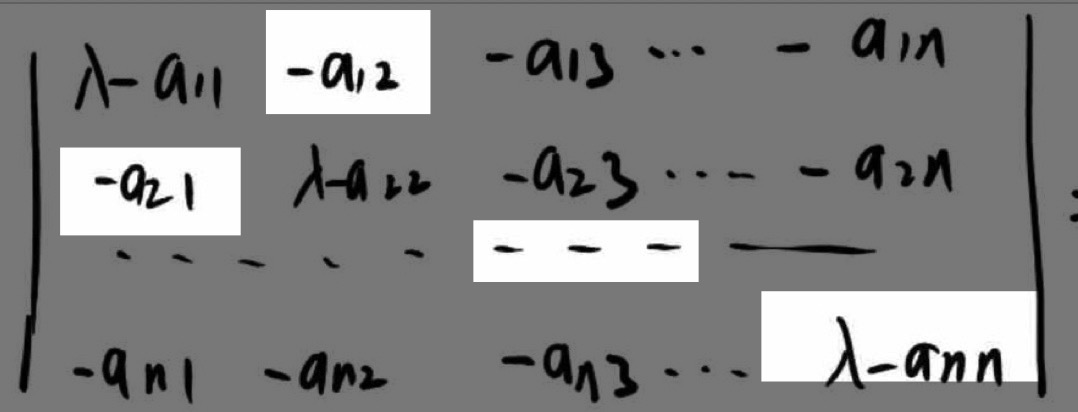 λ-a11 -a12 -a13 ... - a1n
-a21 λ-a22 -a23 ... - a2n
- - - - - - - - —
-an1 -an2 -an3 ... λ-ann